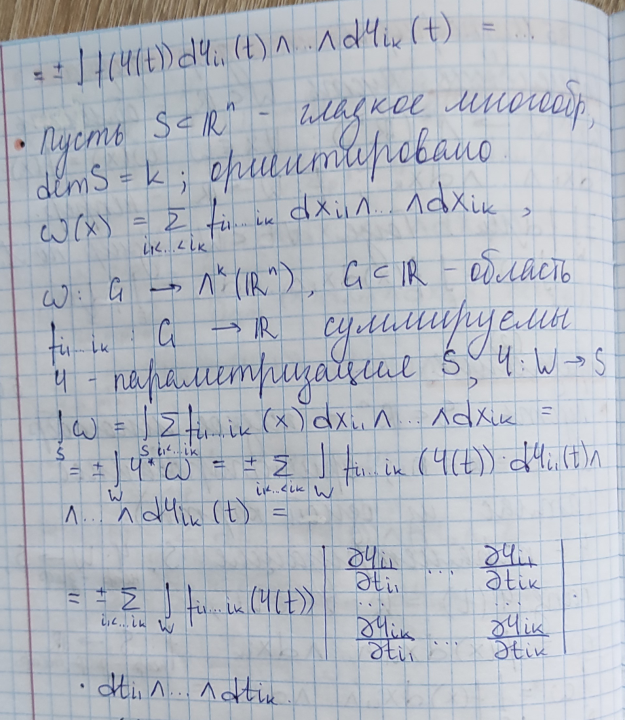 = ± ∫ f(φ(t)) dφ_{i1}(t) ∧ ... ∧ dφ_{ik}(t) = ...
• Пусть S ⊂ ℝⁿ - гладкое многообр,
dim S = k ; ориентировано.
ω(x) = Σ_{i1<...<ik} f_{i1...ik} dx_{i1} ∧ ... ∧ dx_{ik} ,
ω : G → Λᵏ(ℝⁿ), G ⊂ ℝ - область
f_{i1...ik} : G → ℝ суммируемы
φ - параметризация S, φ : W → S
∫_S ω = ∫_S Σ_{i1<...<ik} f_{i1...ik} (x) dx_{i1} ∧ ... ∧ dx_{ik} =
= ± ∫_W φ* ω = ± Σ_{i1<...<ik} ∫_W f_{i1...ik} (φ(t)) · dφ_{i1}(t) ∧
∧ ... ∧ dφ_{ik} (t) =
= ± Σ_{i1<...ik} ∫_W f_{i1...ik} (φ(t)) | ∂φ_{i1}/∂t_{i1} ... ∂φ_{i1}/∂t_{ik} ... ... ∂φ_{ik}/∂t_{i1} ... ∂φ_{ik}/∂t_{ik} | ·
· dt_{i1} ∧ ... ∧ dt_{ik}.